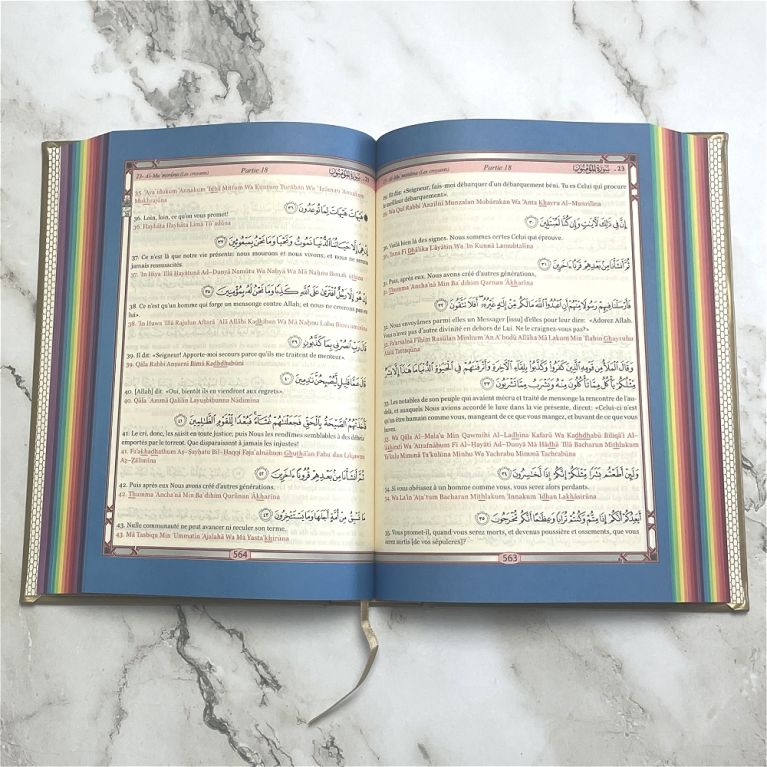 23- Al-Mu'minūna (Les croyants) Partie 18 سُورَةُ المُؤْمِنُون - 23
29. Et dis: «Seigneur, fais-moi débarquer d'un débarquement béni. Tu es Celui qui procure
le meilleur débarquement».
29. Wa Qul Rabbi 'Anzilnī Munzalan Mubārakan Wa 'Anta Khayru Al-Munzilīna
إِنَّ فِي ذَٰلِكَ لَآيَاتٍ وَإِن كُنَّا لَمُبْتَلِينَ ٣٠
30. Voilà bien là des signes. Nous sommes certes Celui qui éprouve.
30. 'Inna Fī Dhālika L'āyātin Wa 'In Kunnā Lamubtalīna
ثُمَّ أَنشَأْنَا مِن بَعْدِهِمْ قَرْنًا ءَاخَرِينَ ٣١
31. Puis, après eux, Nous avons créé d'autres générations,
31. Thumma 'Ansha'nā Min Ba`dihim Qarnan 'Ākharīna
فَأَرْسَلْنَا فِيهِمْ رَسُولًا مِنْهُمْ أَنِ ٱعْبُدُواْ ٱللَّهَ مَا لَكُم مِّنْ إِلَٰهٍ غَيْرُهُۥٓ أَفَلَا تَتَّقُونَ ٣٢
32. Nous envoyâmes parmi elles un Messager [issu] d'elles pour leur dire: «Adorez Allah.
Vous n'avez pas d'autre divinité en dehors de Lui. Ne le craignez-vous pas?»
32. Fa'arsalnā Fīhim Rasūlan Minhum 'An A`budū Allāha Mā Lakum Min 'Ilahin Ghayruhu
'Afalā Tattaqūna
وَقَالَ ٱلْمَلَأُ مِن قَوْمِهِ ٱلَّذِينَ كَفَرُواْ وَكَذَّبُواْ بِلِقَآءِ ٱلْأَخِرَةِ وَأَتْرَفْنَٰهُمْ فِي ٱلْحَيَوٰةِ ٱلدُّنْيَا مَا هَٰذَآ إِلَّا بَشَرٌ
مِّثْلُكُمْ يَأْكُلُ مِمَّا تَأْكُلُونَ مِنْهُ وَيَشْرَبُ مِمَّا تَشْرَبُونَ ٣٣
33. Les notables de son peuple qui avaient mécru et traité de mensonge la rencontre de l'au-
delà, et auxquels Nous avions accordé le luxe dans la vie présente, dirent: «Celui-ci n'est
qu'un être humain comme vous, mangeant de ce que vous mangez, et buvant de ce que vous
buvez.
33. Wa Qāla Al-Mala'u Min Qawmihi Al-Ladhīna Kafarū Wa Kadhdhabū Biliqā'i Al-
'Ākhirati Wa 'Atrafnāhum Fī Al-Ĥayāati Ad-Dunyā Mā Hādhā 'Illā Basharun Mithlukum
Ya'kulu Mimmā Ta'kulūna Minhu Wa Yashrabu Mimmā Tashrabūna
وَلَئِنْ أَطَعْتُم بَشَرًا مِّثْلَكُمْ إِنَّكُمْ إِذًا لَّخَٰسِرُونَ ٣٤
34. Si vous obéissez à un homme comme vous, vous serez alors perdants.
34. Wa La'in 'Aţa`tum Basharan Mithlakum 'Innakum 'Idhan Lakhāsirūna
أَيَعِدُكُمْ أَنَّكُمْ إِذَا مِتُّمْ وَكُنتُمْ تُرَابًا وَعِظَٰمًا أَنَّكُم مُّخْرَجُونَ ٣٥
35. Vous promet-il, quand vous serez morts, et devenus poussière et ossements, que vous
serez sortis [de vos sépulcres]?
563
23- Al-Mu'minūna (Les croyants) Partie 18 سُورَةُ المُؤْمِنُون - 23
35. 'Aya`idukum 'Annakum 'Idhā Mittum Wa Kuntum Turābāan Wa `Ižāmāan 'Annakum
Mukhrajūna
هَيْهَاتَ هَيْهَاتَ لِمَا تُوعَدُونَ ٣٦
36. Loin, loin, ce qu'on vous promet!
36. Hayhāta Hayhāta Limā Tū`adūna
إِنْ هِيَ إِلَّا حَيَاتُنَا ٱلدُّنْيَا نَمُوتُ وَنَحْيَا وَمَا نَحْنُ بِمَبْعُوثِينَ ٣٧
37. Ce n'est là que notre vie présente: nous mourons et nous vivons, et nous ne serons
jamais ressuscités.
37. 'In Hiya 'Illā Ĥayātunā Ad-Dunyā Namūtu Wa Naĥyā Wa Mā Naĥnu Bimab`ūthīna
إِنْ هُوَ إِلَّا رَجُلٌ ٱفْتَرَىٰ عَلَى ٱللَّهِ كَذِبًا وَمَا نَحْنُ لَهُۥ بِمُؤْمِنِينَ ٣٨
38. Ce n'est qu'un homme qui forge un mensonge contre Allah; et nous ne croirons pas en
lui».
38. 'In Huwa 'Illā Rajulun Aftará `Alá Allāhi Kadhibāan Wa Mā Naĥnu Lahu Bimu'uminīna
قَالَ رَبِّ ٱنصُرْنِي بِمَا كَذَّبُونِ ٣٩
39. Il dit: «Seigneur! Apporte-moi secours parce qu'ils me traitent de menteur».
39. Qāla Rabbi Anşurnī Bimā Kadhdhabūni
قَالَ عَمَّا قَلِيلٍ لَّيُصْبِحُنَّ نَٰدِمِينَ ٤٠
40. [Allah] dit: «Oui, bientôt ils en viendront aux regrets».
40. Qāla `Ammā Qalīlin Layuşbiĥunna Nādimīna
فَأَخَذَتْهُمُ ٱلصَّيْحَةُ بِٱلْحَقِّ فَجَعَلْنَٰهُمْ غُثَآءً فَبُعْدًا لِّلْقَوْمِ ٱلظَّٰلِمِينَ ٤١
41. Le cri, donc, les saisit en toute justice; puis Nous les rendîmes semblables à des débris
emportés par le torrent. Que disparaissent à jamais les injustes!
41. Fa'akhadhat/hum Aş-Şayĥatu Bil-Ĥaqqi Faja`alnāhum Ghuthā'an Fabu`dāan Lilqawmi
Až-Žālimīna
ثُمَّ أَنشَأْنَا مِن بَعْدِهِمْ قُرُونًا ءَاخَرِينَ ٤٢
42. Puis après eux Nous avons créé d'autres générations.
42. Thumma 'Ansha'nā Min Ba`dihim Qurūnan 'Ākharīna
مَا تَسْبِقُ مِنْ أُمَّةٍ أَجَلَهَا وَمَا يَسْتَـْٔخِرُونَ ٤٣
43. Nulle communauté ne peut avancer ni reculer son terme.
43. Mā Tasbiqu Min 'Ummatin 'Ajalahā Wa Mā Yasta'khirūna
564